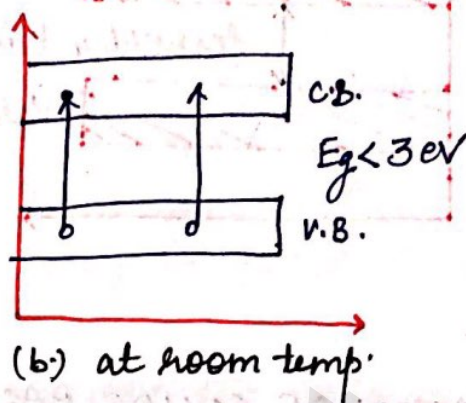 C.B.
Eg<3 eV
V.B.
(b.) at room temp.